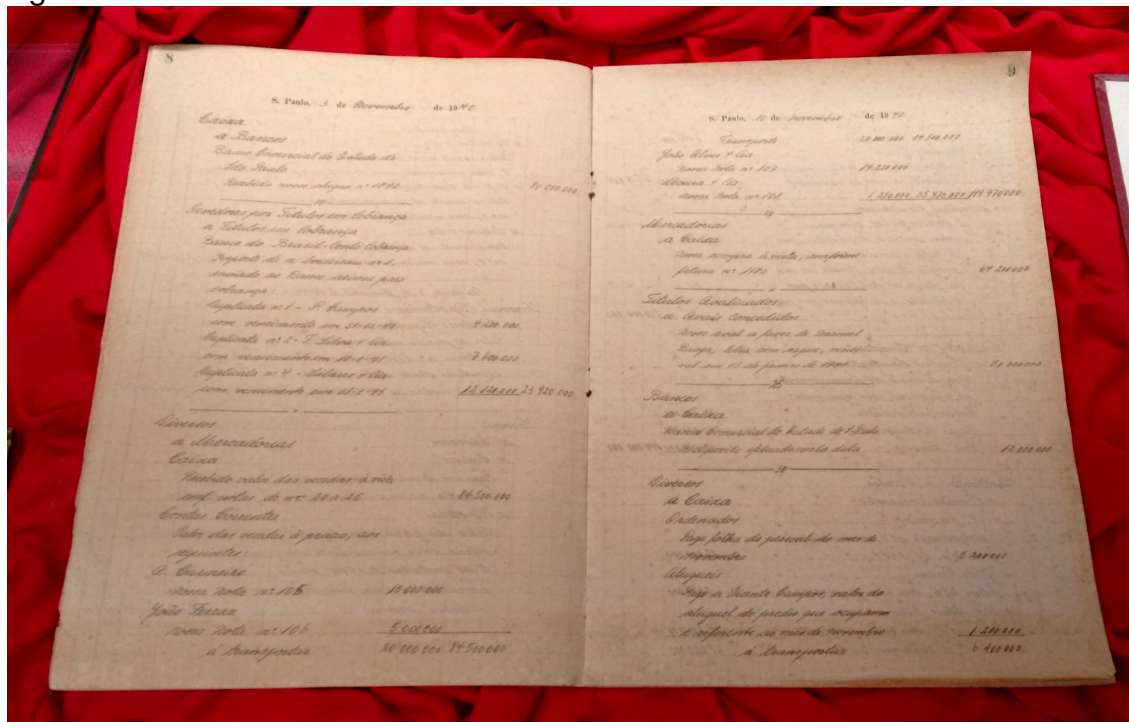 8
S. Paulo, 3 de Novembro de 1940
Caixa
a Bancos
Banco Comercial do Estado de
São Paulo
Recebido nosso cheque nº
10
Devedores por Títulos em Cobrança
a Títulos em Cobrança
Banco do Brasil-Conta Cobrança
Importe de n/ borderau nº 1,
enviado ao Banco acima para
cobrança:
Duplicata nº 1 - P. Campos
com vencimento em 31-12-40
Duplicata nº 2 - T. Silva & Cia.
com vencimento em 10-1-41 7.600.000
Duplicata nº 4 - & Cia
com vencimento em 21-1-41 12.120.000 23.920.000
Diversos
a Mercadorias
Caixa
Recebido valor das vendas à vista
conf. notas de nºs 20 a 26 84.500.000
Contas Correntes
Valor das vendas à prazo, aos
seguintes:
A. Carneiro
nossa nota nº 105 15.000.000
João Ferraz
nossa nota nº 106 5.000.000
à transportar 20.000.000 84.500.000
9
S. Paulo, 10 de Novembro de 1940
Transporte 20.000.000 84.500.000
João Alves & Cia
nossa nota nº 107 14.220.000
& Cia.
nossa nota nº 108 1.250.000 35.470.000 119.970.000
Mercadorias
a Caixa
nossa compra à vista, conforme
fatura nº 1180 64.200.000
Títulos Avalizados
a Avais Concedidos
nosso aval a favor de Manoel
letra com saque,
em 15 de janeiro de 1941
25
Bancos
a Caixa
Banco Comercial do Estado de S. Paulo
N/ depósito efetuado nesta data 12.000.000
30
Diversos
a Caixa
Ordenados
Pago folha do pessoal do mês de
novembro 5.200.000
Alugueis
Pago a Vicente Campos, valor do
aluguel do prédio que ocupamos
e referente ao mês de novembro 1.200.000
à transportar 6.400.000